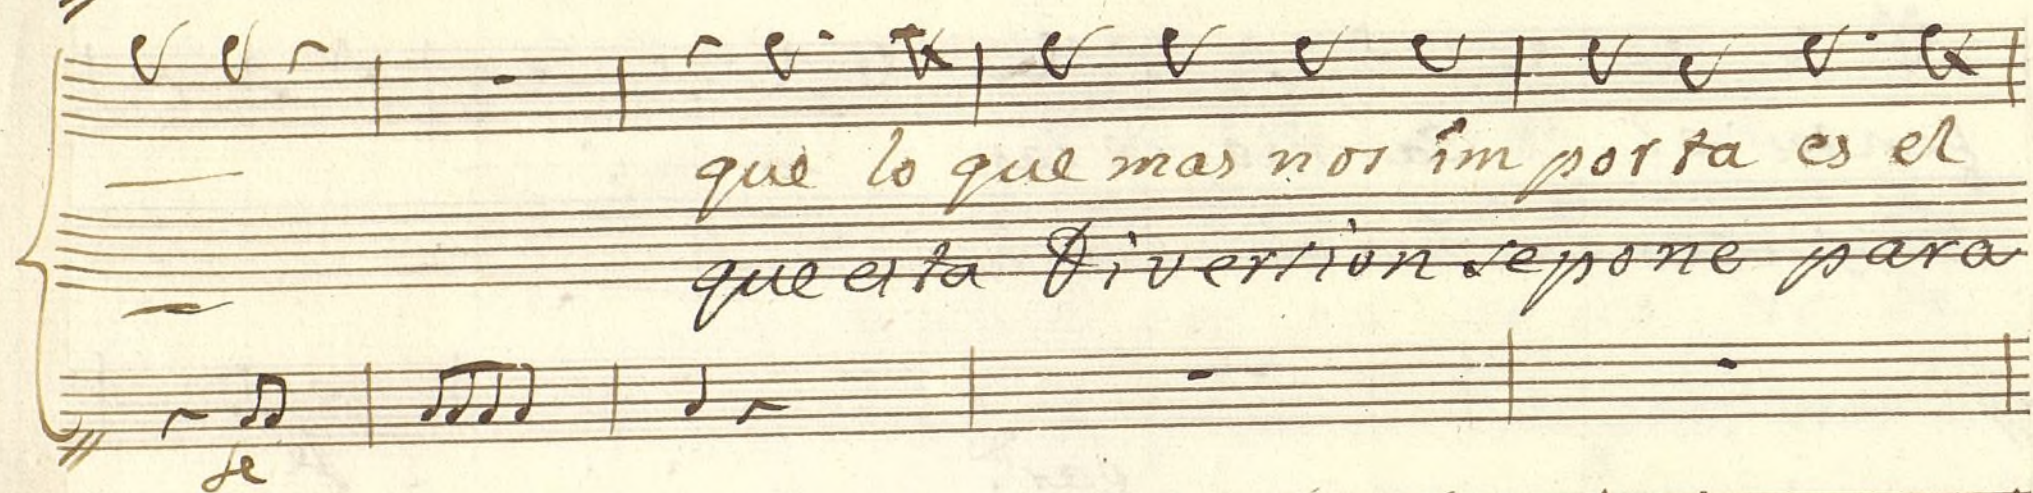 que lo que mas nos im por ta es el
que esta Diversion se pone para
fe